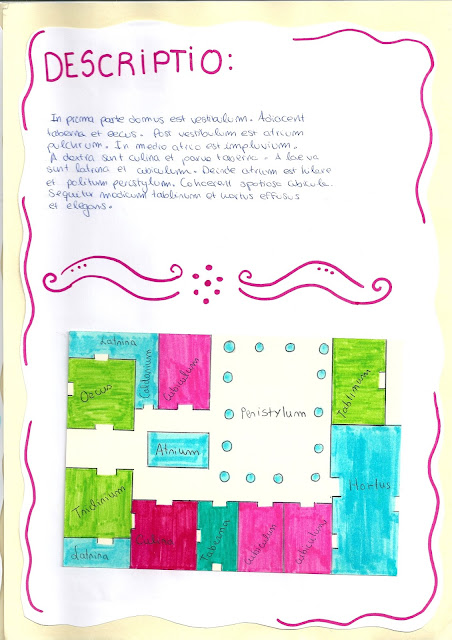 DESCRIPTIO:
In prima parte domus est vestibulum. Adiacent
taberna et oecus. Post vestibulum est atrium
pulchrum. In medio atrio est impluvium.
A dextra sunt culina et parva taberna. A laeva
sunt latrina et cubiculum. Deinde atrium est
et politum peristylum. spatiosa cubicula.
Sequitur modicum tablinum et hortus effusus
et elegans.
Latrina
Caldarium
Cubiculum
Oecus
Peristylum
Tablinum
Atrium
Hortus
Triclinium
Culina
Taberna
Cubiculum
Cubiculum
Latrina